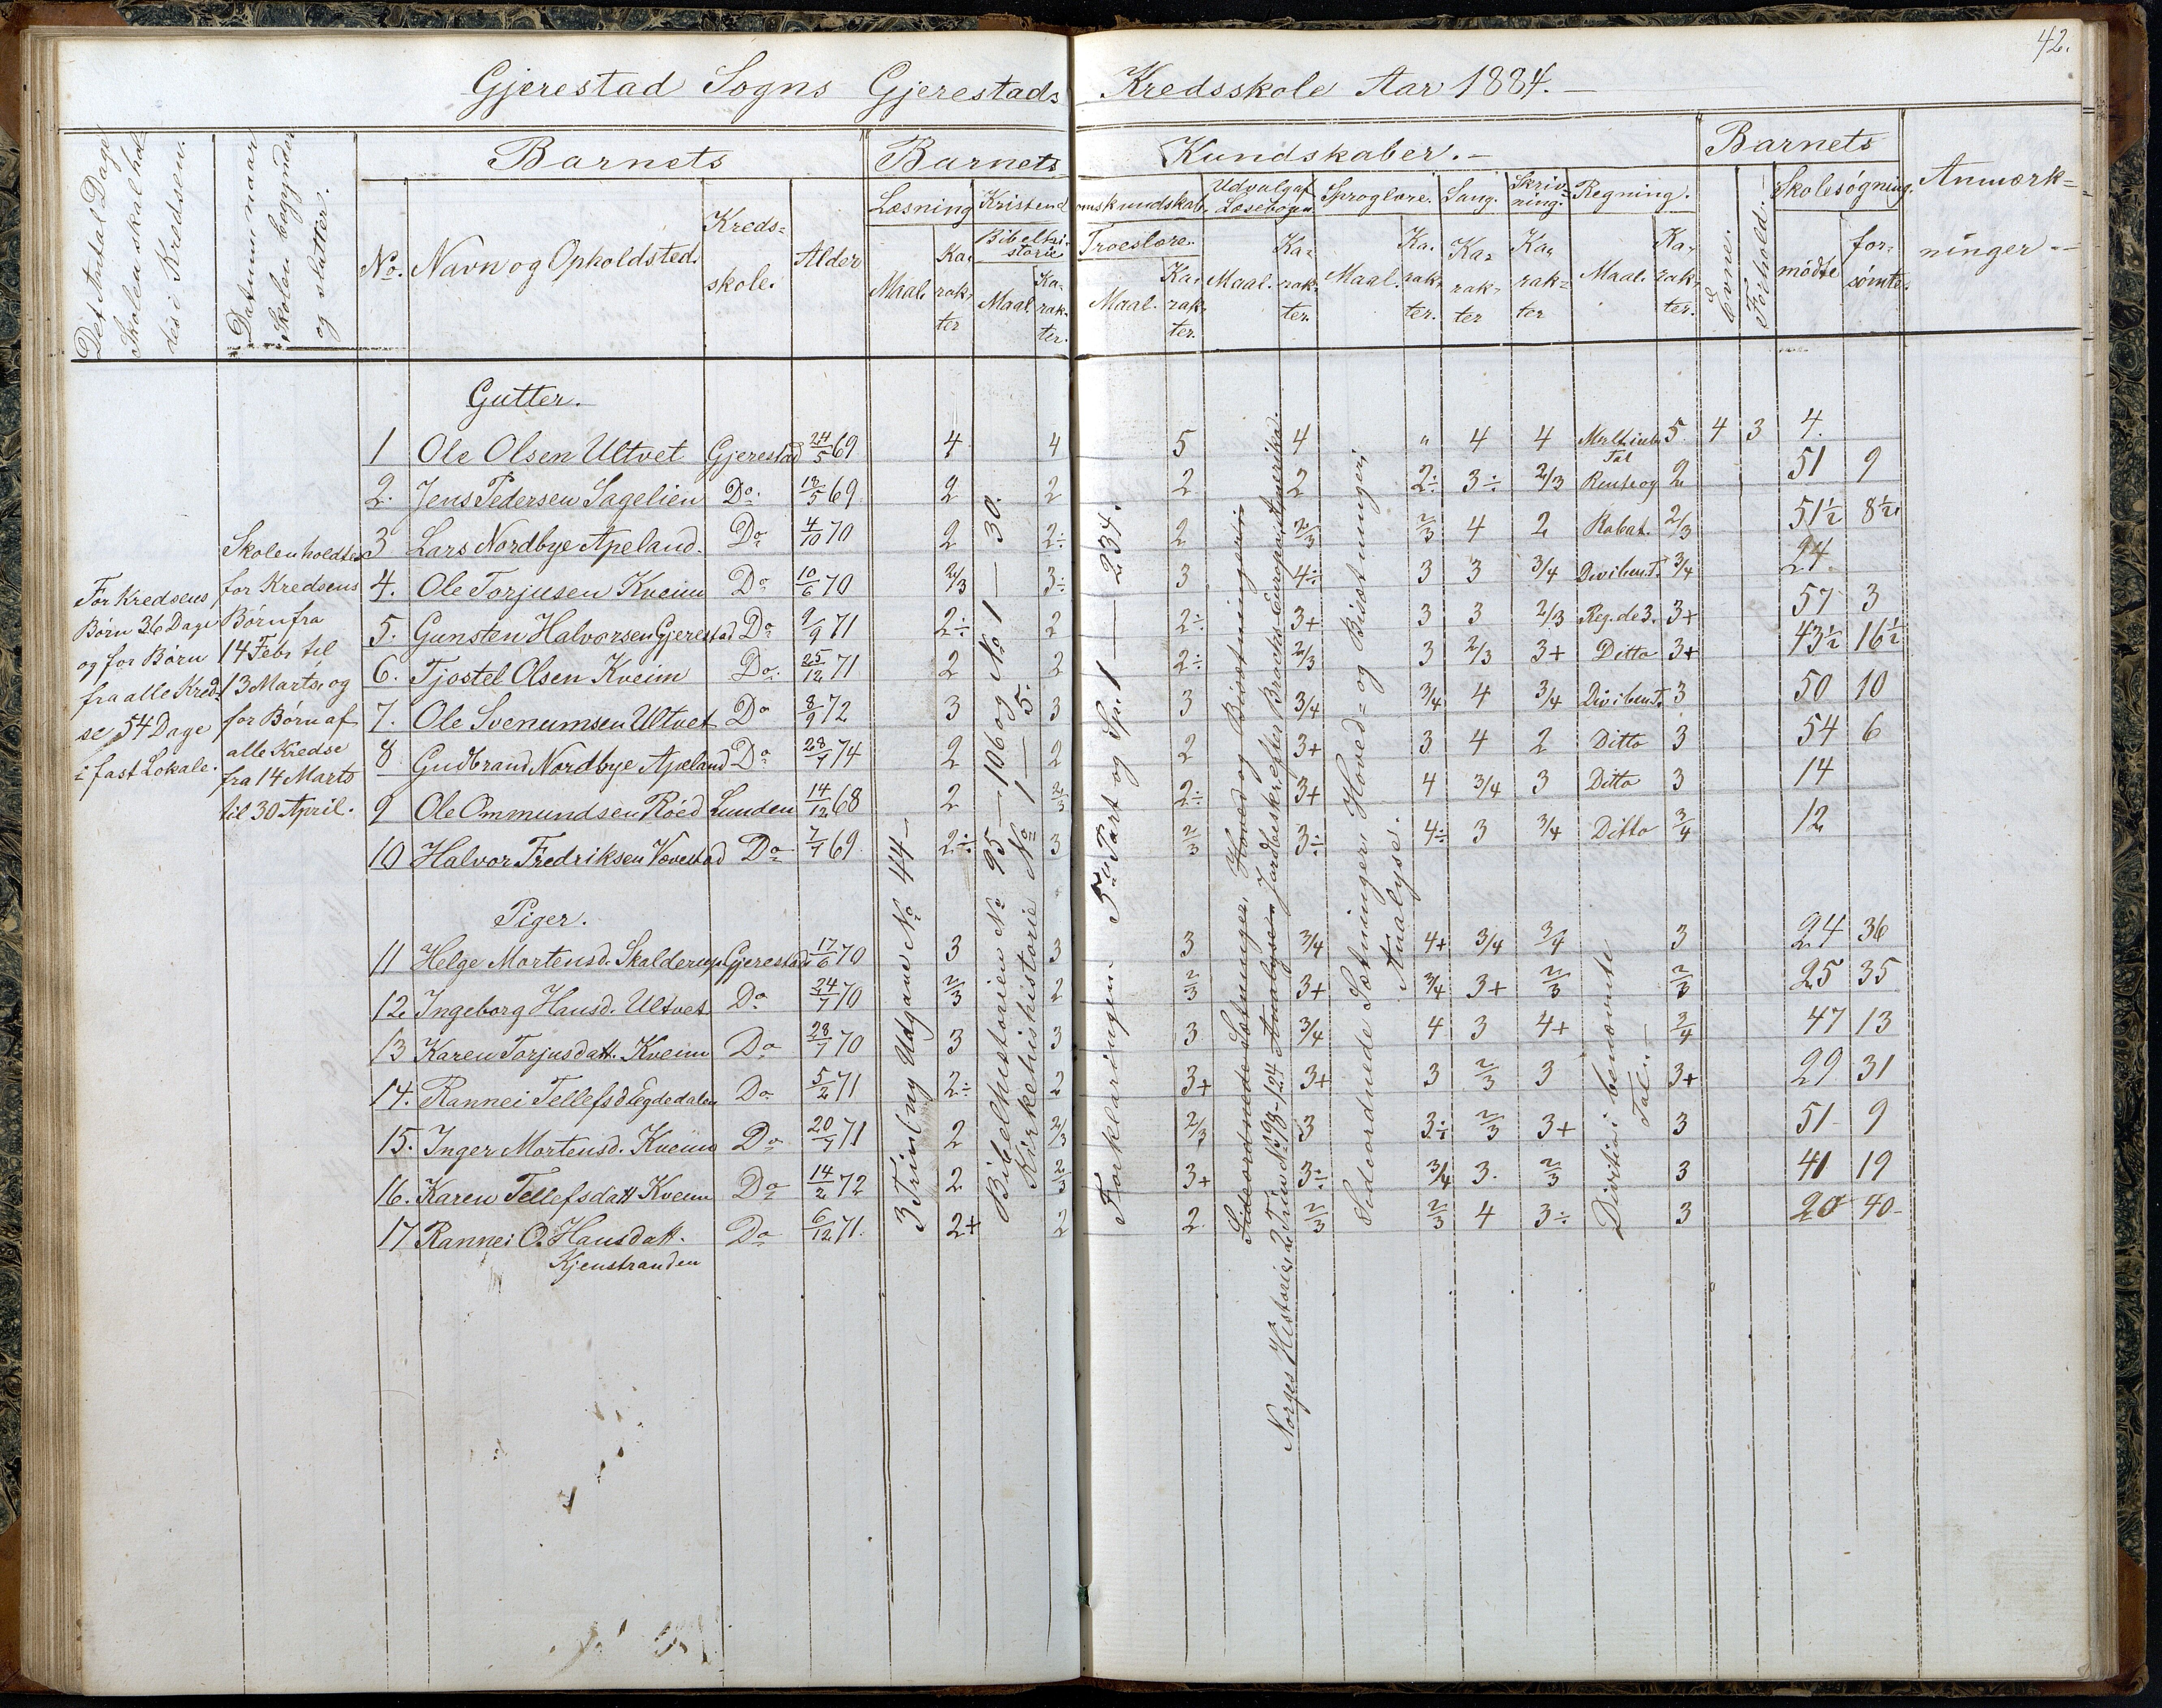 42.
Gjerestad Sogns Gjerestads Kredsskole Aar 1884.
Det Antal Dage Skolen skal holdes i Kredsen.
Datum naar Skolen begynder og slutter.
Barnets
No. Navn og Opholdsted. Kredsskole. Alder
Barnets Kundskaber.
Læsning Kristendomskundskab. Udvalg af Læsebogen Sproglære. Sang. Skrivning. Regning.
Bibelhistorie Troeslære.
Maal. Karakter Maal. Karakter. Maal. Karakter. Maal. Karakter. Maal. Karakter. Karakter Karakter Maal. Karakter.
Evne. Forhold.
Barnets
Skolesøgning.
mødte forsømte.
Anmærkninger
For Kredsens
Børn 36 Dage
og for Børn
fra alle Kred-
se 54 Dage
i fast Lokale.
Skolen holdtes
for Kredsens
Børn fra
14 Febr til
13 Marts, og
for Børn af
alle Kredse
fra 14 Marts
til 30 April.
Gutter.
1 Ole Olsen Ultvet Gjerestad 24/5 69 4 4 5 4 " 4 4 5 4 3 4.
2. Jens Pedersen Sagelien Do. 18/5 69. 2 2 2 2 2÷ 3÷ 2/3 2 51 9
3 Lars Nordbye Apeland. Do 4/10 70 2 2÷ 2 2/3 2/3 4 2 Rabat. 2/3 51½ 8½
4. Ole Torjusen Kveim Do 10/6 70 2/3 3÷ 3 4÷ 3 3 3/4 3/4 24.
5. Gunsten Halvorsen Gjerestad Do 9/9 71 2÷ 2 2÷ 3+ 3 3 2/3 Reg. de 3. 3+ 57 3
6. Tjostel Olsen Kveim Do. 25/12 71 2 2 2÷ 2/3 3 2/3 3+ Ditto 3+ 43½ 16½
7. Ole Svenumsen Ultvet Do 8/9 72 3 3 3 3/4 3/4 4 3/4 3 50 10
8 Gudbrand Nordbye Apeland Do 28/7 74 2 2 2 3+ 3 4 2 Ditto 3 54 6
9 Ole Ommundsen Röed Lunden 14/12 68 2 2/3 2÷ 3+ 4 3/4 3 Ditto 3 14
10 Halvor Fredriksen Vævestad Do 7/7 69. 2÷ 3 2/3 3÷ 4÷ 3 3/4 Ditto 3/4 12
Piger.
11 Helge Mortensd. Skalderup Gjerestad 17/6 70 3 3 3 3/4 4+ 3/4 3/4 3 24 36
12. Ingeborg Hansd. Ultvet Do 24/7 70 2/3 2 2/3 3+ 3/4 3+ 2/3 2/3 25 35
13 Karen Torjusdatt. Kveim Do 28/7 70 3 3 3 3/4 4 3 4+ 3/4 47 13
14. Rannei Tellefsd Egdedalen Do 5/2 71 2÷ 2 3+ 3+ 3 2/3 3 3+ 29 31
15. Inger Mortensd. Kveim Do 20/7 71 2 2/3 2/3 3 3÷ 2/3 3+ 3 51 9
16. Karen Tellefsdatt Kveim Do 14/2 72 2 2/3 3+ 3÷ 3/4 3. 2/3 3 41 19
17 Rannei O. Hansdatt. Do 6/12 71. 2+ 2 2 2/3 2/3 4 3÷ 3 20 40
Kjenstranden
3 Trin(?) ny Udgave No 44
Bibelhistorien No 95 — 106 og No 1 — 30.
Kirkehistorie No 1 — 5.
Forklaringen. Part og Sp. 1 — 234.
Sideordnede Sætninger, Hoved og Bisætninger
Norges Historie 2 Trin No 98-124 Jordbeskr. efter Brochs Europa
Sideordnede Sætninger, Hoved- og Bisætninger,
Analyse.
Division i benævnte
Tal.